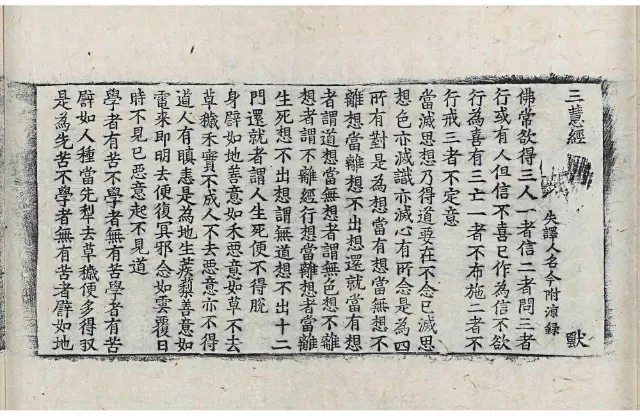 三慧經
失譯人名今附涼錄 獸
佛常欲得三人一者信二者問三者
行或有人但信不喜已作為信不欲
行為喜有三亡一者不布施二者不
行戒三者不定意
當滅思想乃得道要在不念已滅思
想色亦滅識亦滅心有所念是為四
所有對是為想當有想當無想不
離想當離想不出想還就當有想
者謂道想當無想者謂無色想不離
想者謂不離經行想當離想者當離
生死想不出想謂無道想不出十二
門還就者謂人生死便不得脫
身譬如地善意如禾惡意如草不去
草穢禾實不成人不去惡意亦不得
道人有瞋恚是為地生蒺蔾善意如
電來即明去便復冥邪念如雲覆日
時不見已惡意起不見道
學者有苦不學者無有苦學者有苦
譬如人種當先犁去草穢便多得収
是為先苦不學者無有苦者譬如地